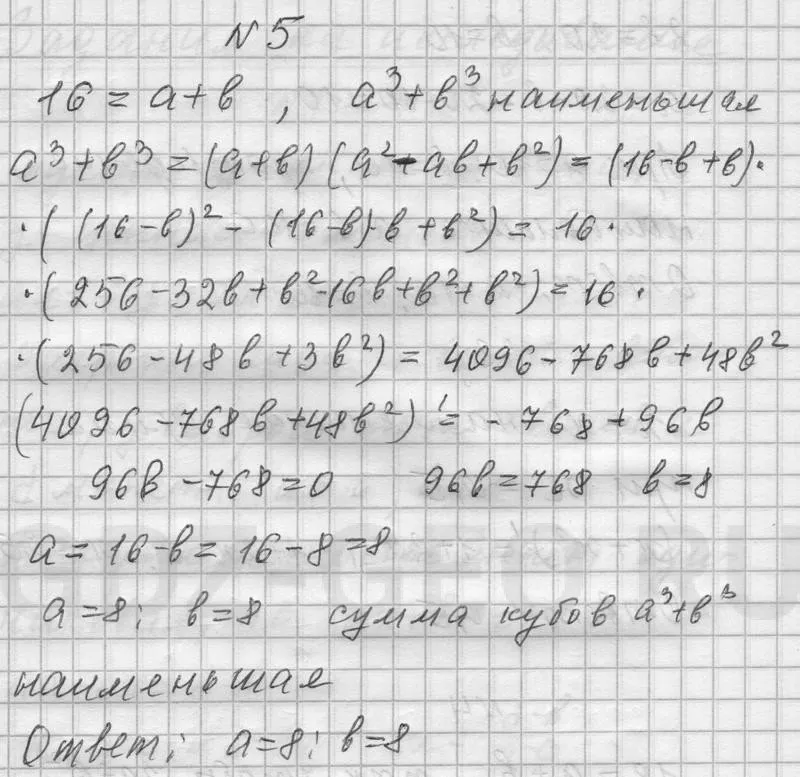 N 5
16 = a + b , a³ + b³ наименьшая
a³ + b³ = (a + b) (a² - ab + b²) = (16 - b + b) ·
· ( (16 - b)² - (16 - b) · b + b²) = 16 ·
· ( 256 - 32b + b² - 16b + b² + b²) = 16 ·
· (256 - 48b + 3b²) = 4096 - 768b + 48b²
(4096 - 768b + 48b²)' = - 768 + 96b
96b - 768 = 0 96b = 768 b = 8
a = 16 - b = 16 - 8 = 8
a = 8; b = 8 сумма кубов a³ + b³
наименьшая
Ответ: a = 8; b = 8